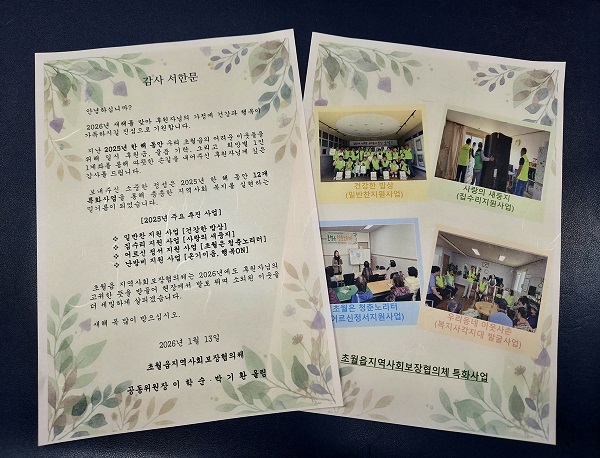 감사 서한문
안녕하십니까?
2026년 새해를 맞아 후원자님의 가정에 건강과 행복이
가득하시길 진심으로 기원합니다.
지난 2025년 한 해 동안 우리 초월읍의 어려운 이웃들을
위해 일시 후원금, 물품 기탁, 그리고 희망별 1인
1계좌를 통해 따뜻한 손길을 내어주신 후원자님께 깊은
감사를 드립니다.
보내주신 소중한 정성은 2025년 한 해 동안 12개
특화사업을 통해 촘촘한 지역사회 복지를 실현하는
밑거름이 되었습니다.
[2025년 주요 후원 사업]
❖ 일반찬 지원 사업 [건강한 밥상]
❖ 집수리 지원 사업 [사랑의 새둥지]
❖ 어르신 정서 지원 사업 [초월은 청춘노리터]
❖ 난방비 지원 사업 [온기이음, 행복ON]
초월읍 지역사회보장협의체는 2026년에도 후원자님의
고귀한 뜻을 받들어 현장에서 발로 뛰며 소외된 이웃을
더 세밀하게 살피겠습니다.
새해 복 많이 받으십시오.
2026년 1월 13일
초월읍 지역사회보장협의체
공동위원장 이 학 순 · 박 기 환 올림
건강한 밥상
(일반찬지원사업)
사랑의 새둥지
(집수리지원사업)
초월은 청춘노리터
(어르신정서지원사업)
우리동네 이웃사촌
(복지사각지대 발굴사업)
초월읍지역사회보장협의체 특화사업